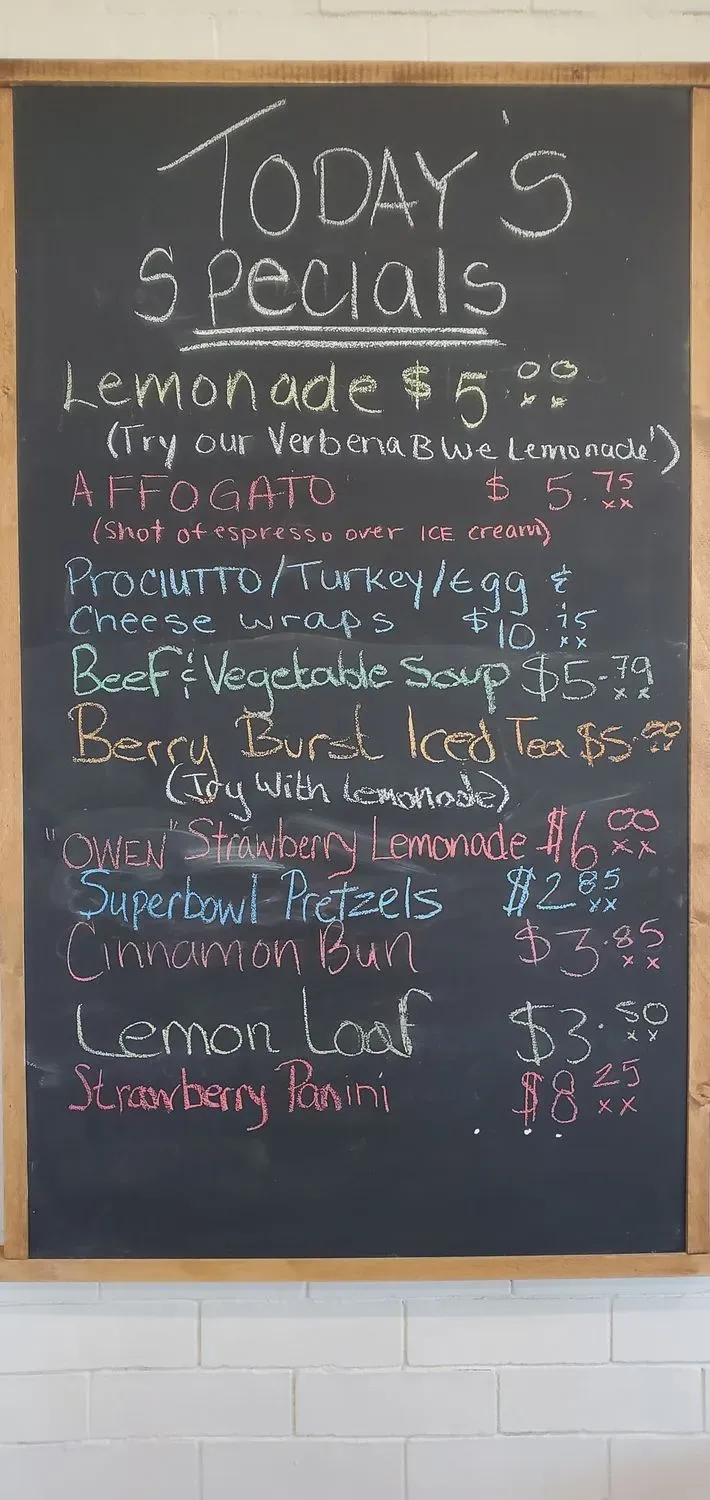 TODAY'S
Specials
Lemonade $5.00
(Try our Verbena Blue Lemonade!)
AFFOGATO $5.75
(Shot of espresso over ICE cream)
PROCIUTTO/Turkey/Egg &
Cheese wraps $10.75
Beef & Vegetable Soup $5.79
Berry Burst Iced Tea $5.00
(Try With Lemonade)
"OWEN" Strawberry Lemonade $6.00
Superbowl Pretzels $2.85
Cinnamon Bun $3.85
Lemon Loaf $3.50
Strawberry Panini $8.25